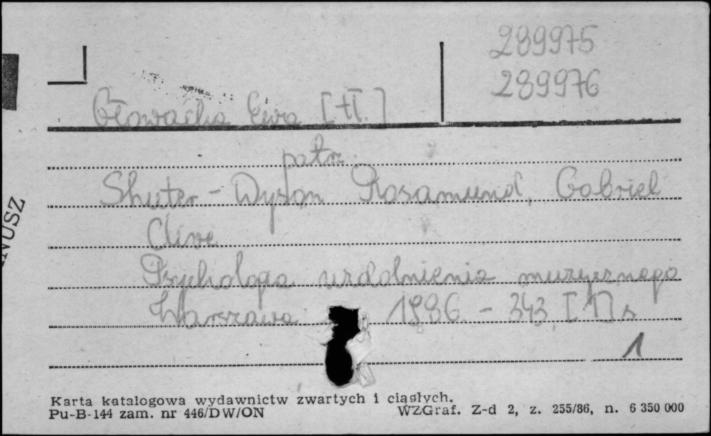 289975
289976
Głowacka Ewa [tł.]
patrz
Shuter-Dyson Rosamund, Gabriel
Clive
Psychologia uzdolnienia muzycznego
Warszawa 1986 - 343 [1] s
1
NUSZ
Karta katalogowa wydawnictw zwartych i ciągłych.
Pu-B-144 zam. nr 446/DW/ON WZGraf. Z-d 2, z. 255/86, n. 6 350 000